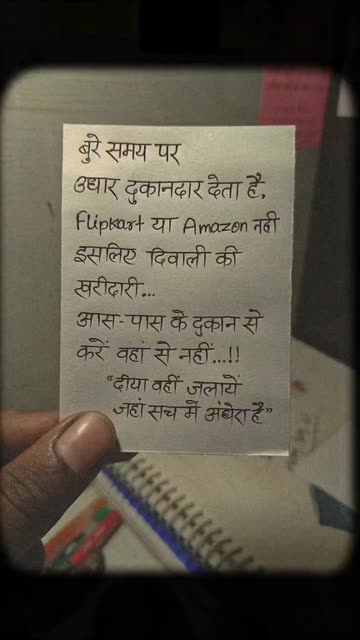 बुरे समय पर
उधार दुकानदार देता है,
Flipkart या Amazon नही
इसलिए दिवाली की
खरीदारी...
आस-पास के दुकान से
करें वहां से नहीं...!!
"दीया वहीं जलायें
जहां सच में अंधेरा है"